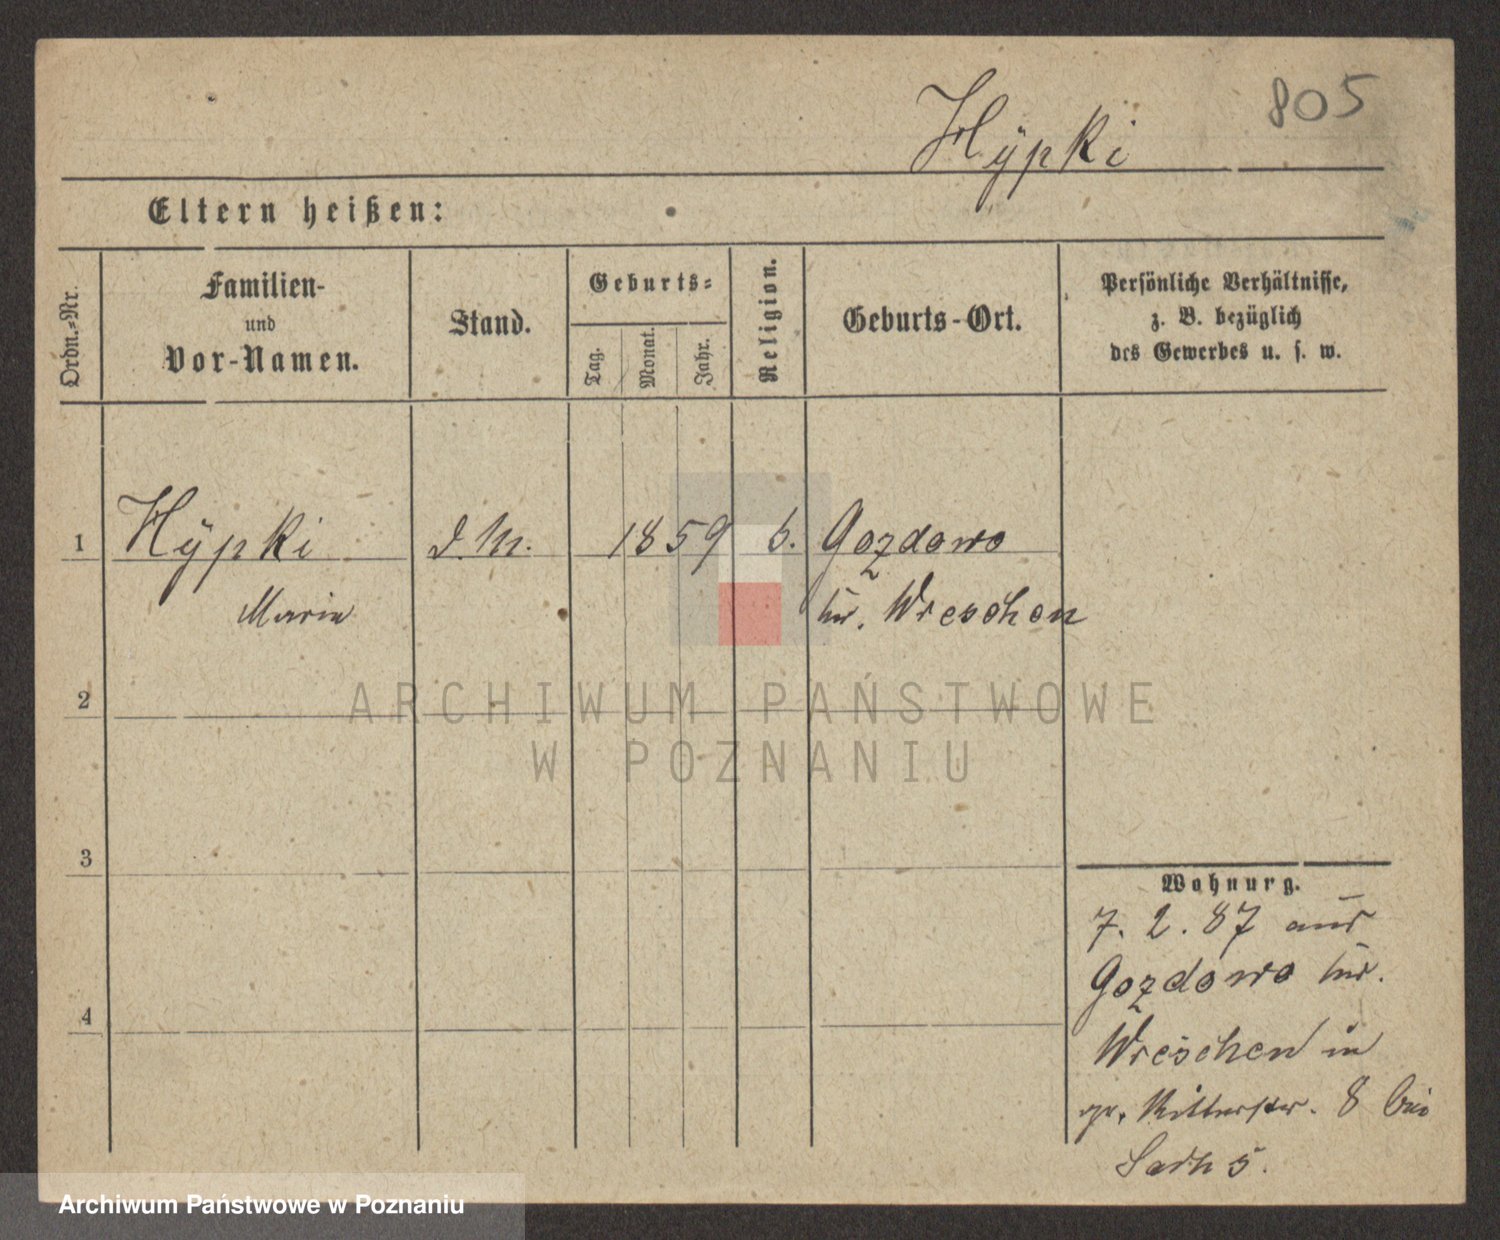 805
Hÿpki
Eltern heißen:
Ordn.=Nr.
Familien-
und
Vor-Namen.
Stand.
Geburts=
Tag.
Monat.
Jahr.
Religion.
Geburts-Ort.
Persönliche Verhältnisse,
z. B. bezüglich
des Gewerbes u. s. w.
1 Hÿpki 1859 Gozdowo
Marie Wreschen
2
ARCHIWUM PAŃSTWOWE
W POZNANIU
3
Wohnurg.
7. 2. 87 aus
Gozdowo
4
Wreschen in
gr. Ritterstr. 8 bei
Archiwum Państwowe w Poznaniu